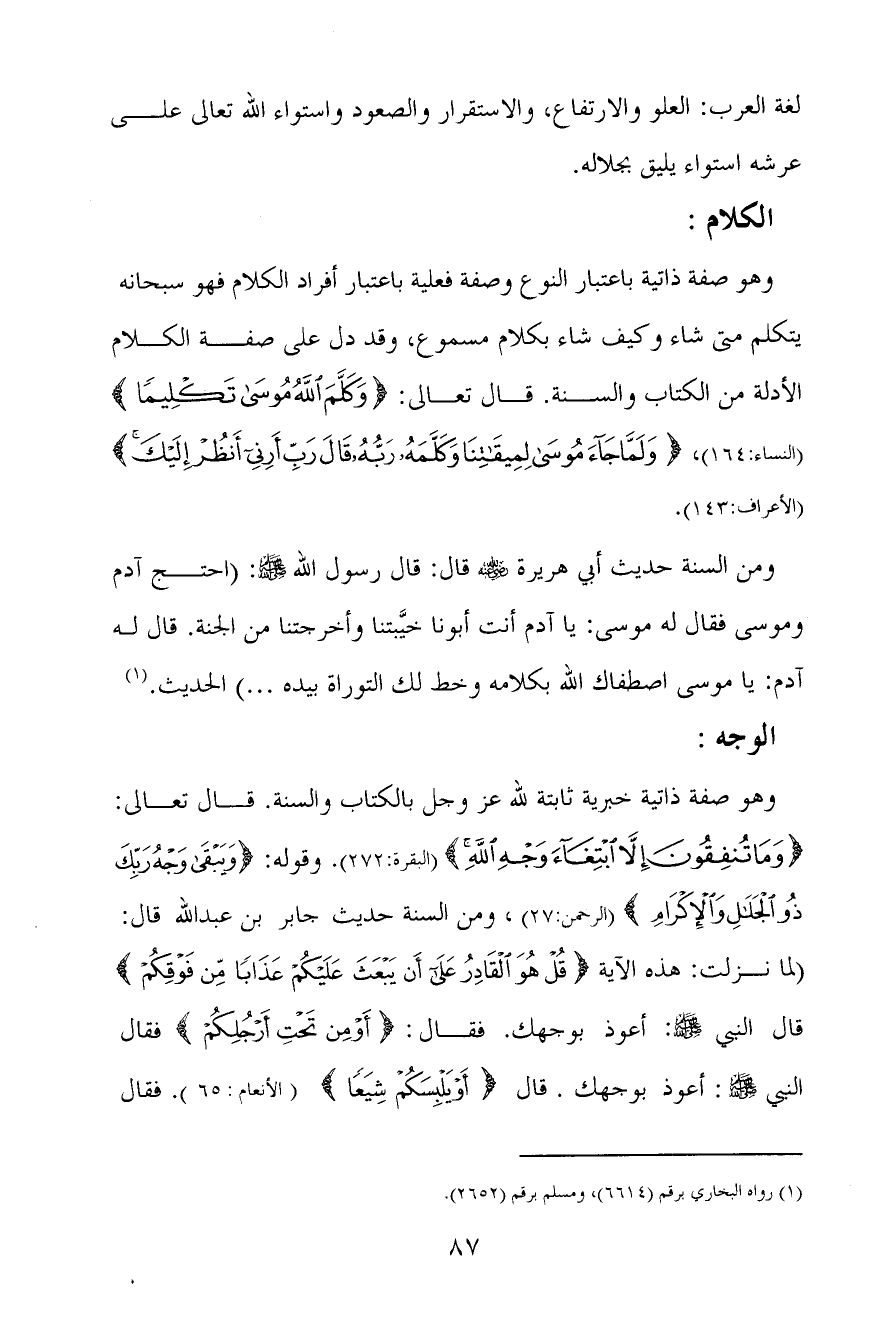 لغة العرب: العلو والارتفاع، والاستقرار والصعود واستواء الله تعالى علـــى
عرشه استواء يليق بجلاله.
الكلام :
وهو صفة ذاتية باعتبار النوع وصفة فعلية باعتبار أفراد الكلام فهو سبحانه
يتكلم متى شاء وكيف شاء بكلام مسموع، وقد دل على صفـــة الكـــلام
الأدلة من الكتاب والســـنة. قـــال تعـــالى: ﴿ وَكَلَّمَ ٱللَّهُ مُوسَىٰ تَكْلِيمًا ﴾
(النساء:١٦٤)، ﴿ وَلَمَّا جَآءَ مُوسَىٰ لِمِيقَٰتِنَا وَكَلَّمَهُۥ رَبُّهُۥ قَالَ رَبِّ أَرِنِىٓ أَنظُرْ إِلَيْكَ ۚ ﴾
(الأعراف:١٤٣).
ومن السنة حديث أبي هريرة رضي الله عنه قال: قال رسول الله ﷺ: (احتـــج آدم
وموسى فقال له موسى: يا آدم أنت أبونا خيَّبتنا وأخرجتنا من الجنة. قال لـه
آدم: يا موسى اصطفاك الله بكلامه وخط لك التوراة بيده ...) الحديث.(١)
الوجه :
وهو صفة ذاتية خبرية ثابتة لله عز وجل بالكتاب والسنة. قـــال تعـــالى:
﴿ وَمَا تُنفِقُونَ إِلَّا ٱبْتِغَآءَ وَجْهِ ٱللَّهِ ۚ ﴾ (البقرة:٢٧٢). وقوله: ﴿ وَيَبْقَىٰ وَجْهُ رَبِّكَ
ذُو ٱلْجَلَٰلِ وَٱلْإِكْرَامِ ﴾ (الرحمن:٢٧) ، ومن السنة حديث جابر بن عبدالله قال:
(لما نـــزلت: هذه الآية ﴿ قُلْ هُوَ ٱلْقَادِرُ عَلَىٰٓ أَن يَبْعَثَ عَلَيْكُمْ عَذَابًا مِّن فَوْقِكُمْ ﴾
قال النبي ﷺ: أعوذ بوجهك. فقـــال : ﴿ أَوْ مِن تَحْتِ أَرْجُلِكُمْ ﴾ فقال
النبي ﷺ : أعوذ بوجهك . قال ﴿ أَوْ يَلْبِسَكُمْ شِيَعًا ﴾ ( الأنعام : ٦٥ ). فقال
(١) رواه البخاري برقم (٦٦١٤)، ومسلم برقم (٢٦٥٢).
٨٧